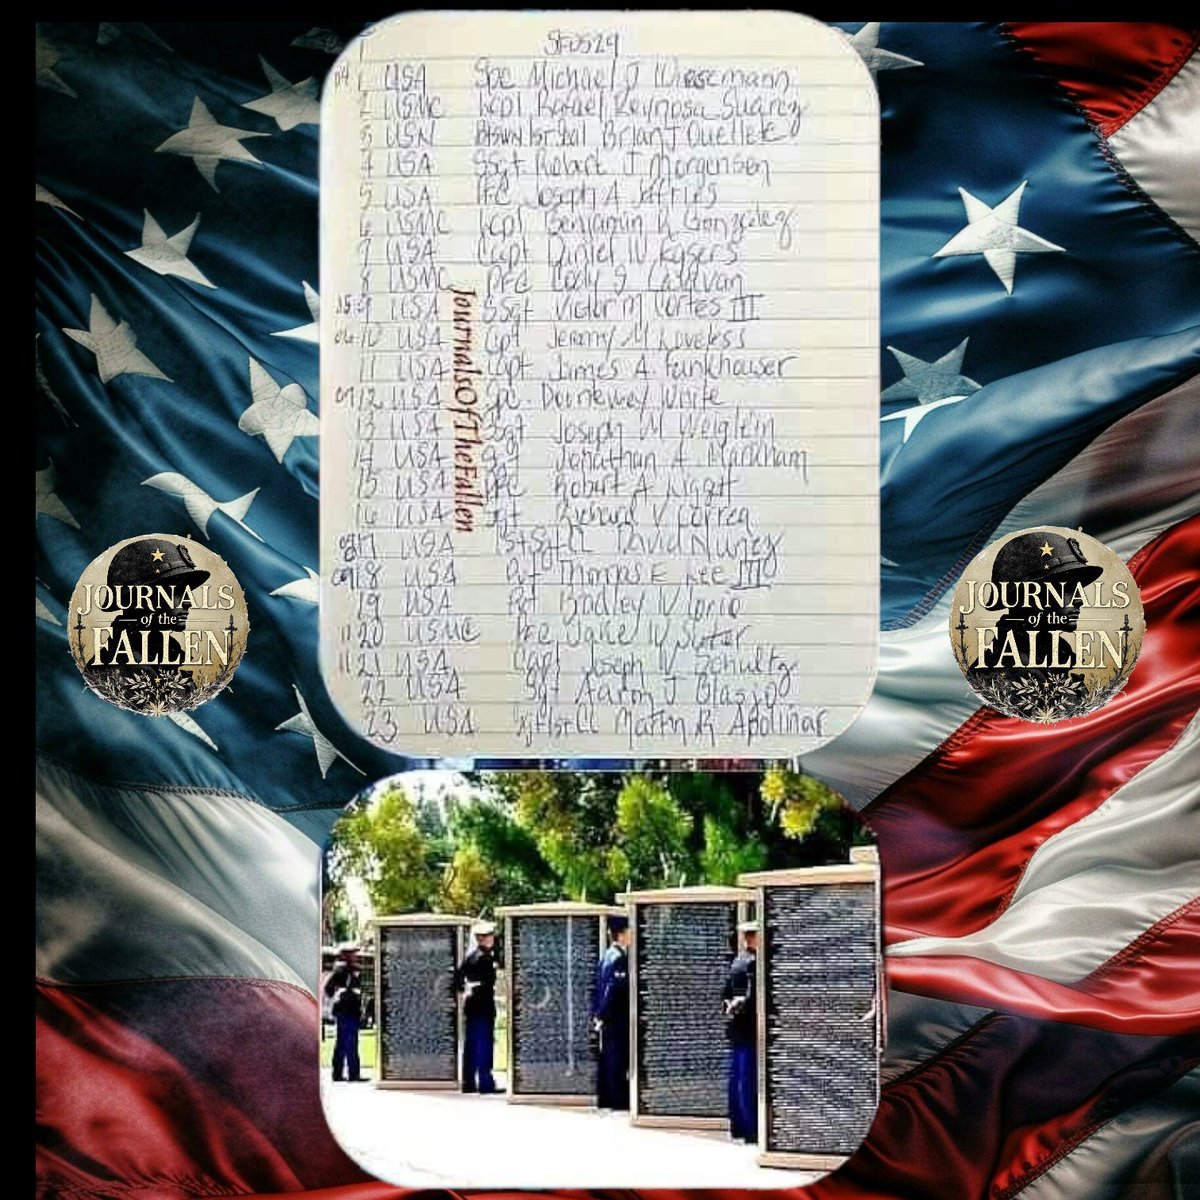 SFOS29
04 1 USA Spc Michael J Wiesemann
2 USMC Lcpl Rafael Reynosa Suarez
3 USN Brian J Ouellete
4 USA SSgt Robert J Morgenson
5 USA PFC Joseph A Jeffries
6 USMC Lcpl Benjamin R Gonzalez
7 USA Capt Daniel W Eggers
8 USMC PFC Cody S Calavan
05 9 USA SSgt Victor M Cortes III
06 10 USA Cpl Jeremy M Loveless
11 USA Capt James A Funkhouser
07 12 USA Doonewey White
13 USA SSgt Joseph M Weiglein
14 USA Sgt Jonathan A Markham
15 USA PFC Robert A Liggett
16 USA Sgt Richard V Correa
08 17 USA 1st David Nunez
09 18 USA Pvt Thomas E Lee III
19 USA Pvt Bradley W Iorio
11 20 USMC PFC Jake W Suter
11 21 USA Capt Joseph W Schultz
22 USA Sgt Aaron J Blasjo
23 USA Martin R Apolinar
JournalsOfTheFallen
JOURNALS
of the
FALLEN
JOURNALS
of the
FALLEN